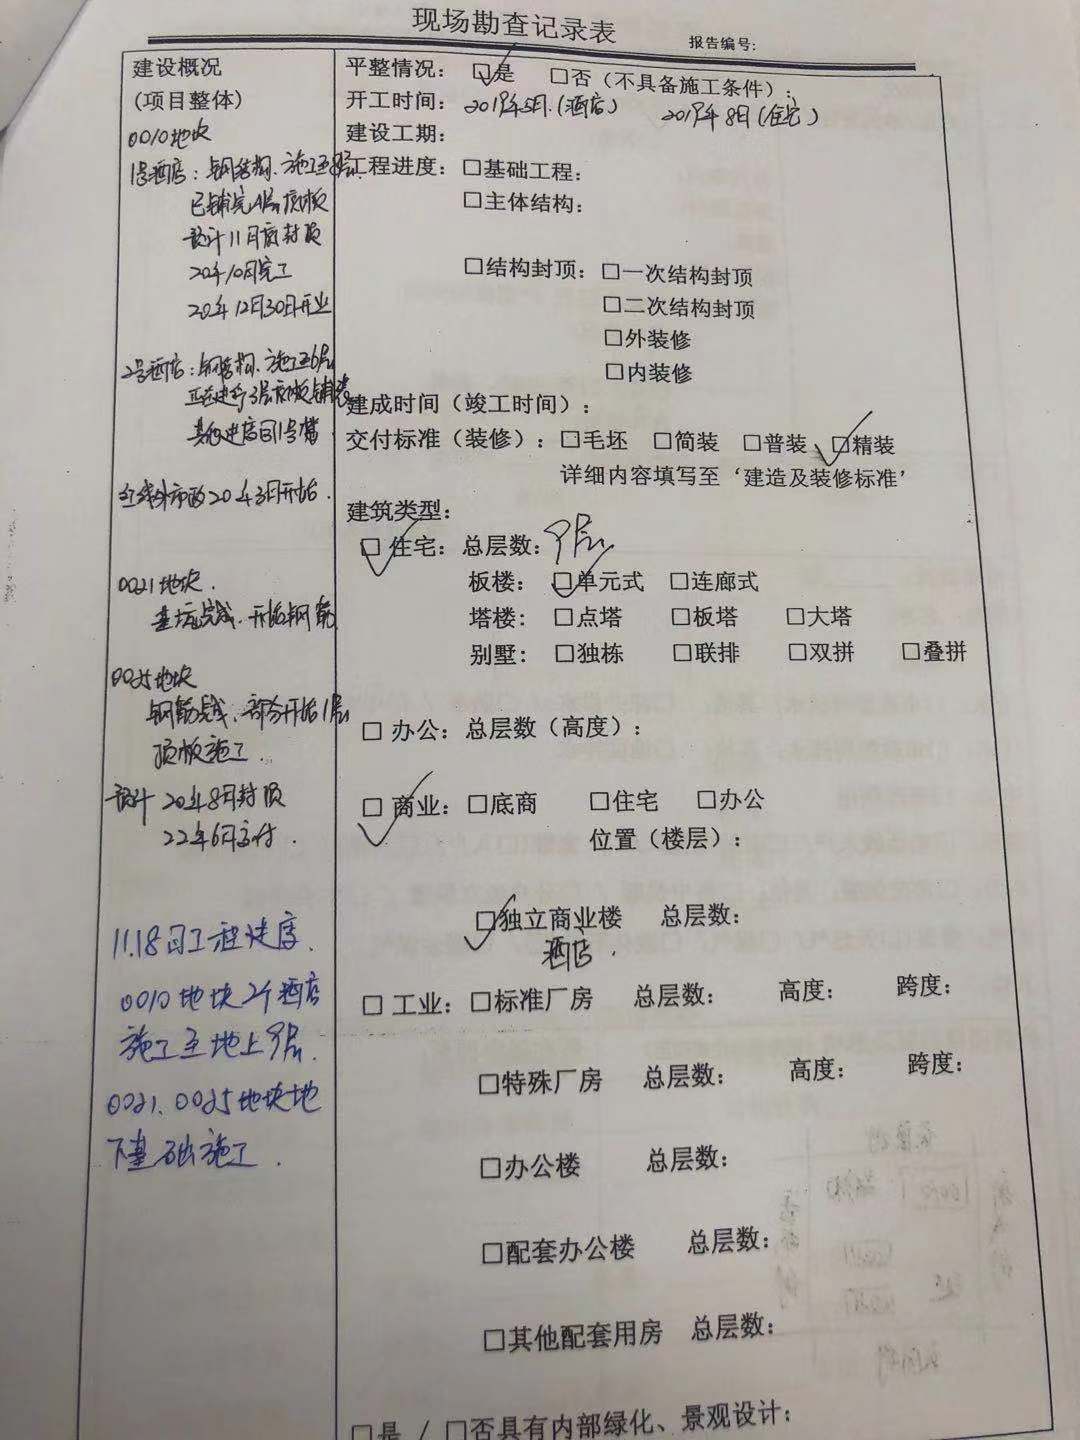 现场勘查记录表
报告编号:
建设概况
(项目整体)
0010地块
1号酒店：钢结构．施工至8层
已铺完4层顶板
预计11月底封顶
20年10月完工
20年12月30日开业
2号酒店：钢结构．施工至6层
正在进行3层顶板铺装
其他进度同1号楼
红线外市政20年3月开始．
0021地块．
基坑完成．开始钢筋
0025地块
钢筋完成、部分开始1层
顶板施工．
预计 20年8月封顶
22年6月交付．
11.18日工程进度．
0010地块2个酒店
施工至地上9层．
0021、0025地块地
下基础施工．
平整情况：□是 □否（不具备施工条件）：
开工时间：2019年5月.（酒店） 2019年8月（住宅）
建设工期：
工程进度：□基础工程：
□主体结构：
□结构封顶：□一次结构封顶
□二次结构封顶
□外装修
□内装修
建成时间（竣工时间）：
交付标准（装修）：□毛坯 □简装 □普装 □精装
详细内容填写至‘建造及装修标准’
建筑类型：
□ 住宅：总层数：9层
板楼：□单元式 □连廊式
塔楼：□点塔 □板塔 □大塔
别墅：□独栋 □联排 □双拼 □叠拼
□ 办公：总层数（高度）：
□ 商业：□底商 □住宅 □办公
位置（楼层）：
□独立商业楼 总层数：
酒店．
□ 工业：□标准厂房 总层数： 高度： 跨度：
□特殊厂房 总层数： 高度： 跨度：
□办公楼 总层数：
□配套办公楼 总层数：
□其他配套用房 总层数：
□是 / □否具有内部绿化、景观设计：